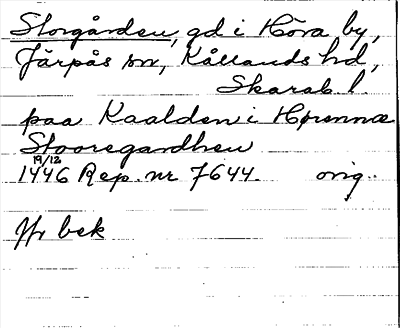 Storgården, gd i Höra by,
Järpås sn, Kållands hd,
Skarab. l.
paa Kaalden i Hørnnæ
Stooregardhen
19/12
1446 Rep. nr 7644. orig.
Jfr bek